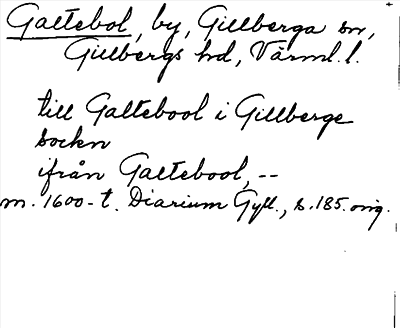 Galtebol, by, Gillberga sn,
Gillbergs hd, Värml. l.
till Galtebool i Gillberge
sockn
ifrån Galtebool, --
m. 1600-t. Diarium Gyll., s. 185. orig.